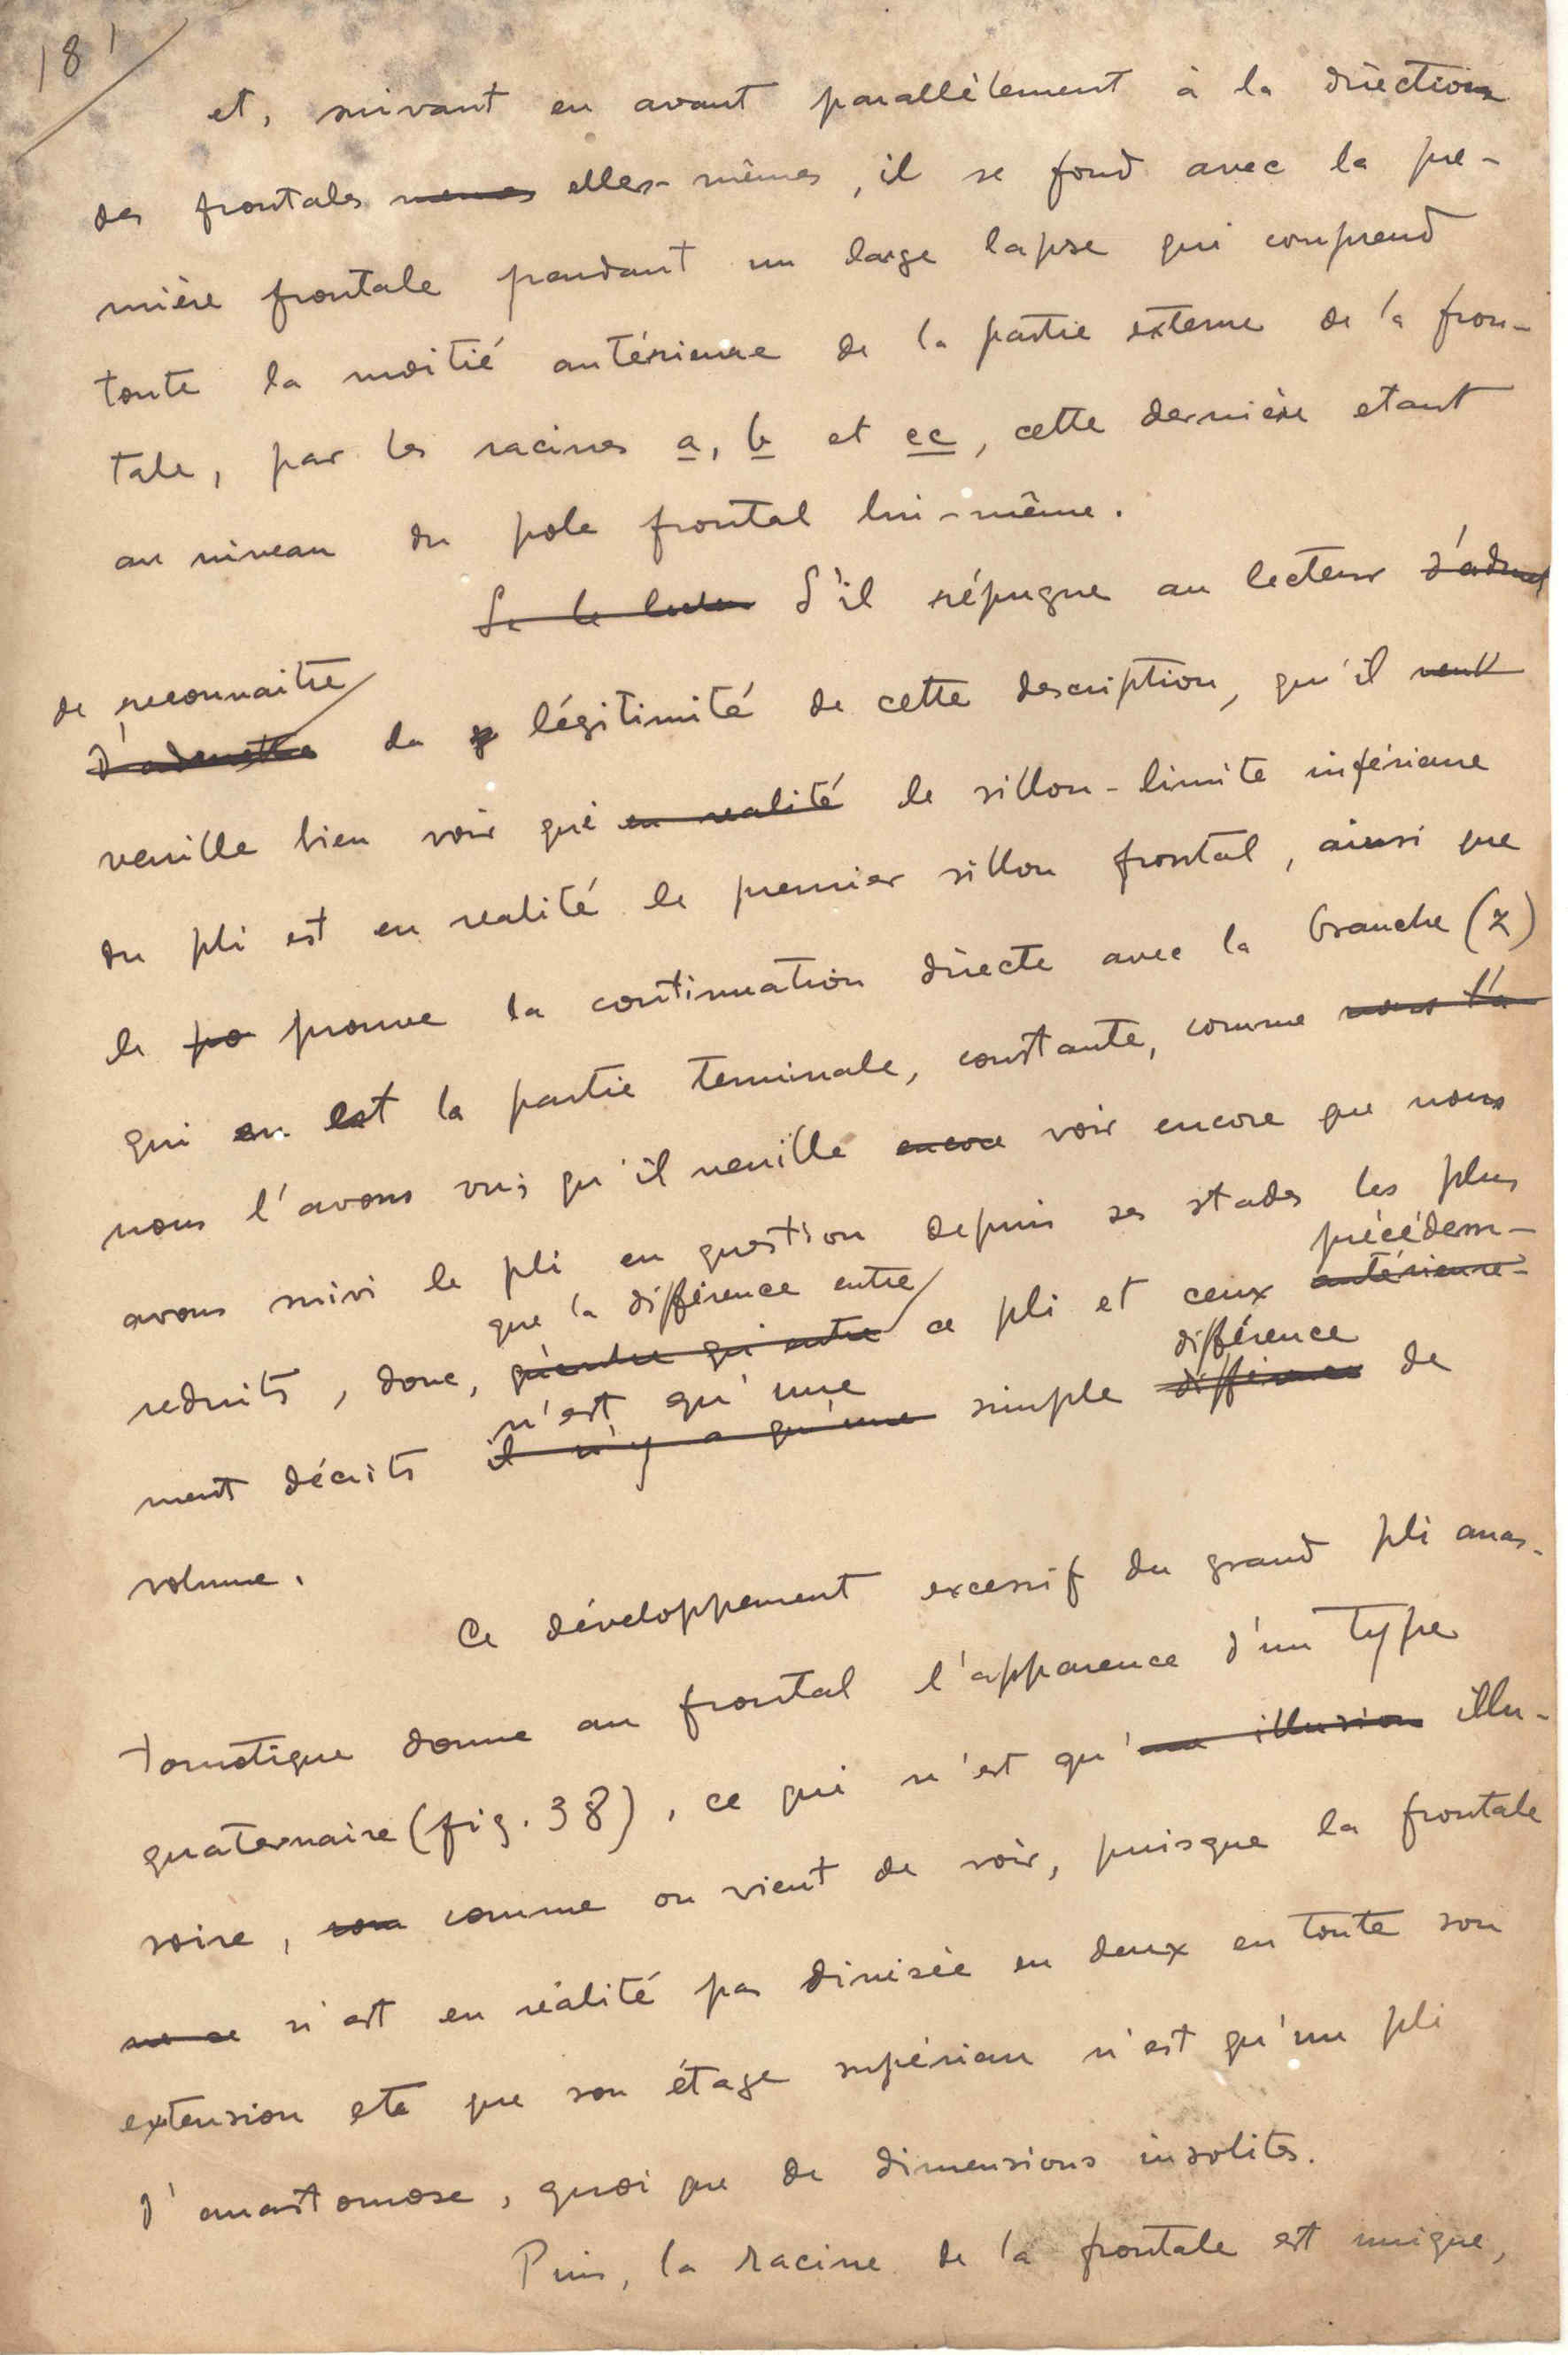 181
et, suivant en avant parallèlement à la direction
des frontales memes elles-mêmes, il se fond avec la pre-
mière frontale pendant un large lapse qui comprend
toute la moitié antérieure de la partie externe de la fron-
tale, par les racines a, b et cc, cette dernière etant
au niveau du pole frontal lui-même.
Si le lecteur S'il répugne au lecteur d'admet
de reconnaitre
d'admettre la légitimité de cette description, qu'il veut
veuille bien voir que en realité le sillon-limite inférieure
du pli est en realité le premier sillon frontal, ainsi que
le po prouve la continuation directe avec la branche (z)
qui en est la partie terminale, constante, comme nous l'a
nous l'avons vu; qu'il veuille encore voir encore que nous
avons suivi le pli en question depuis ses stades les plus
précédem-
que la différence entre
reduits, donc, qu'entre ce pli et ceux antérieure-
différence
n'est qu'une
ment décrits il n'y a qu'une simple différence de
volume.
Ce développement excessif du grand pli anas-
tomotique donne au frontal l'apparence d'un type
quaternaire (fig. 38), ce qui n'est qu'une illusion illu-
soire, comme on vient de voir, puisque la frontale
ne se n'est en réalité pas divisée en deux en toute son
extension ete que son étage supérieur n'est qu'un pli
d'anastomose, quoi que de dimensions insolites.
Puis, la racine de la frontale est unique,